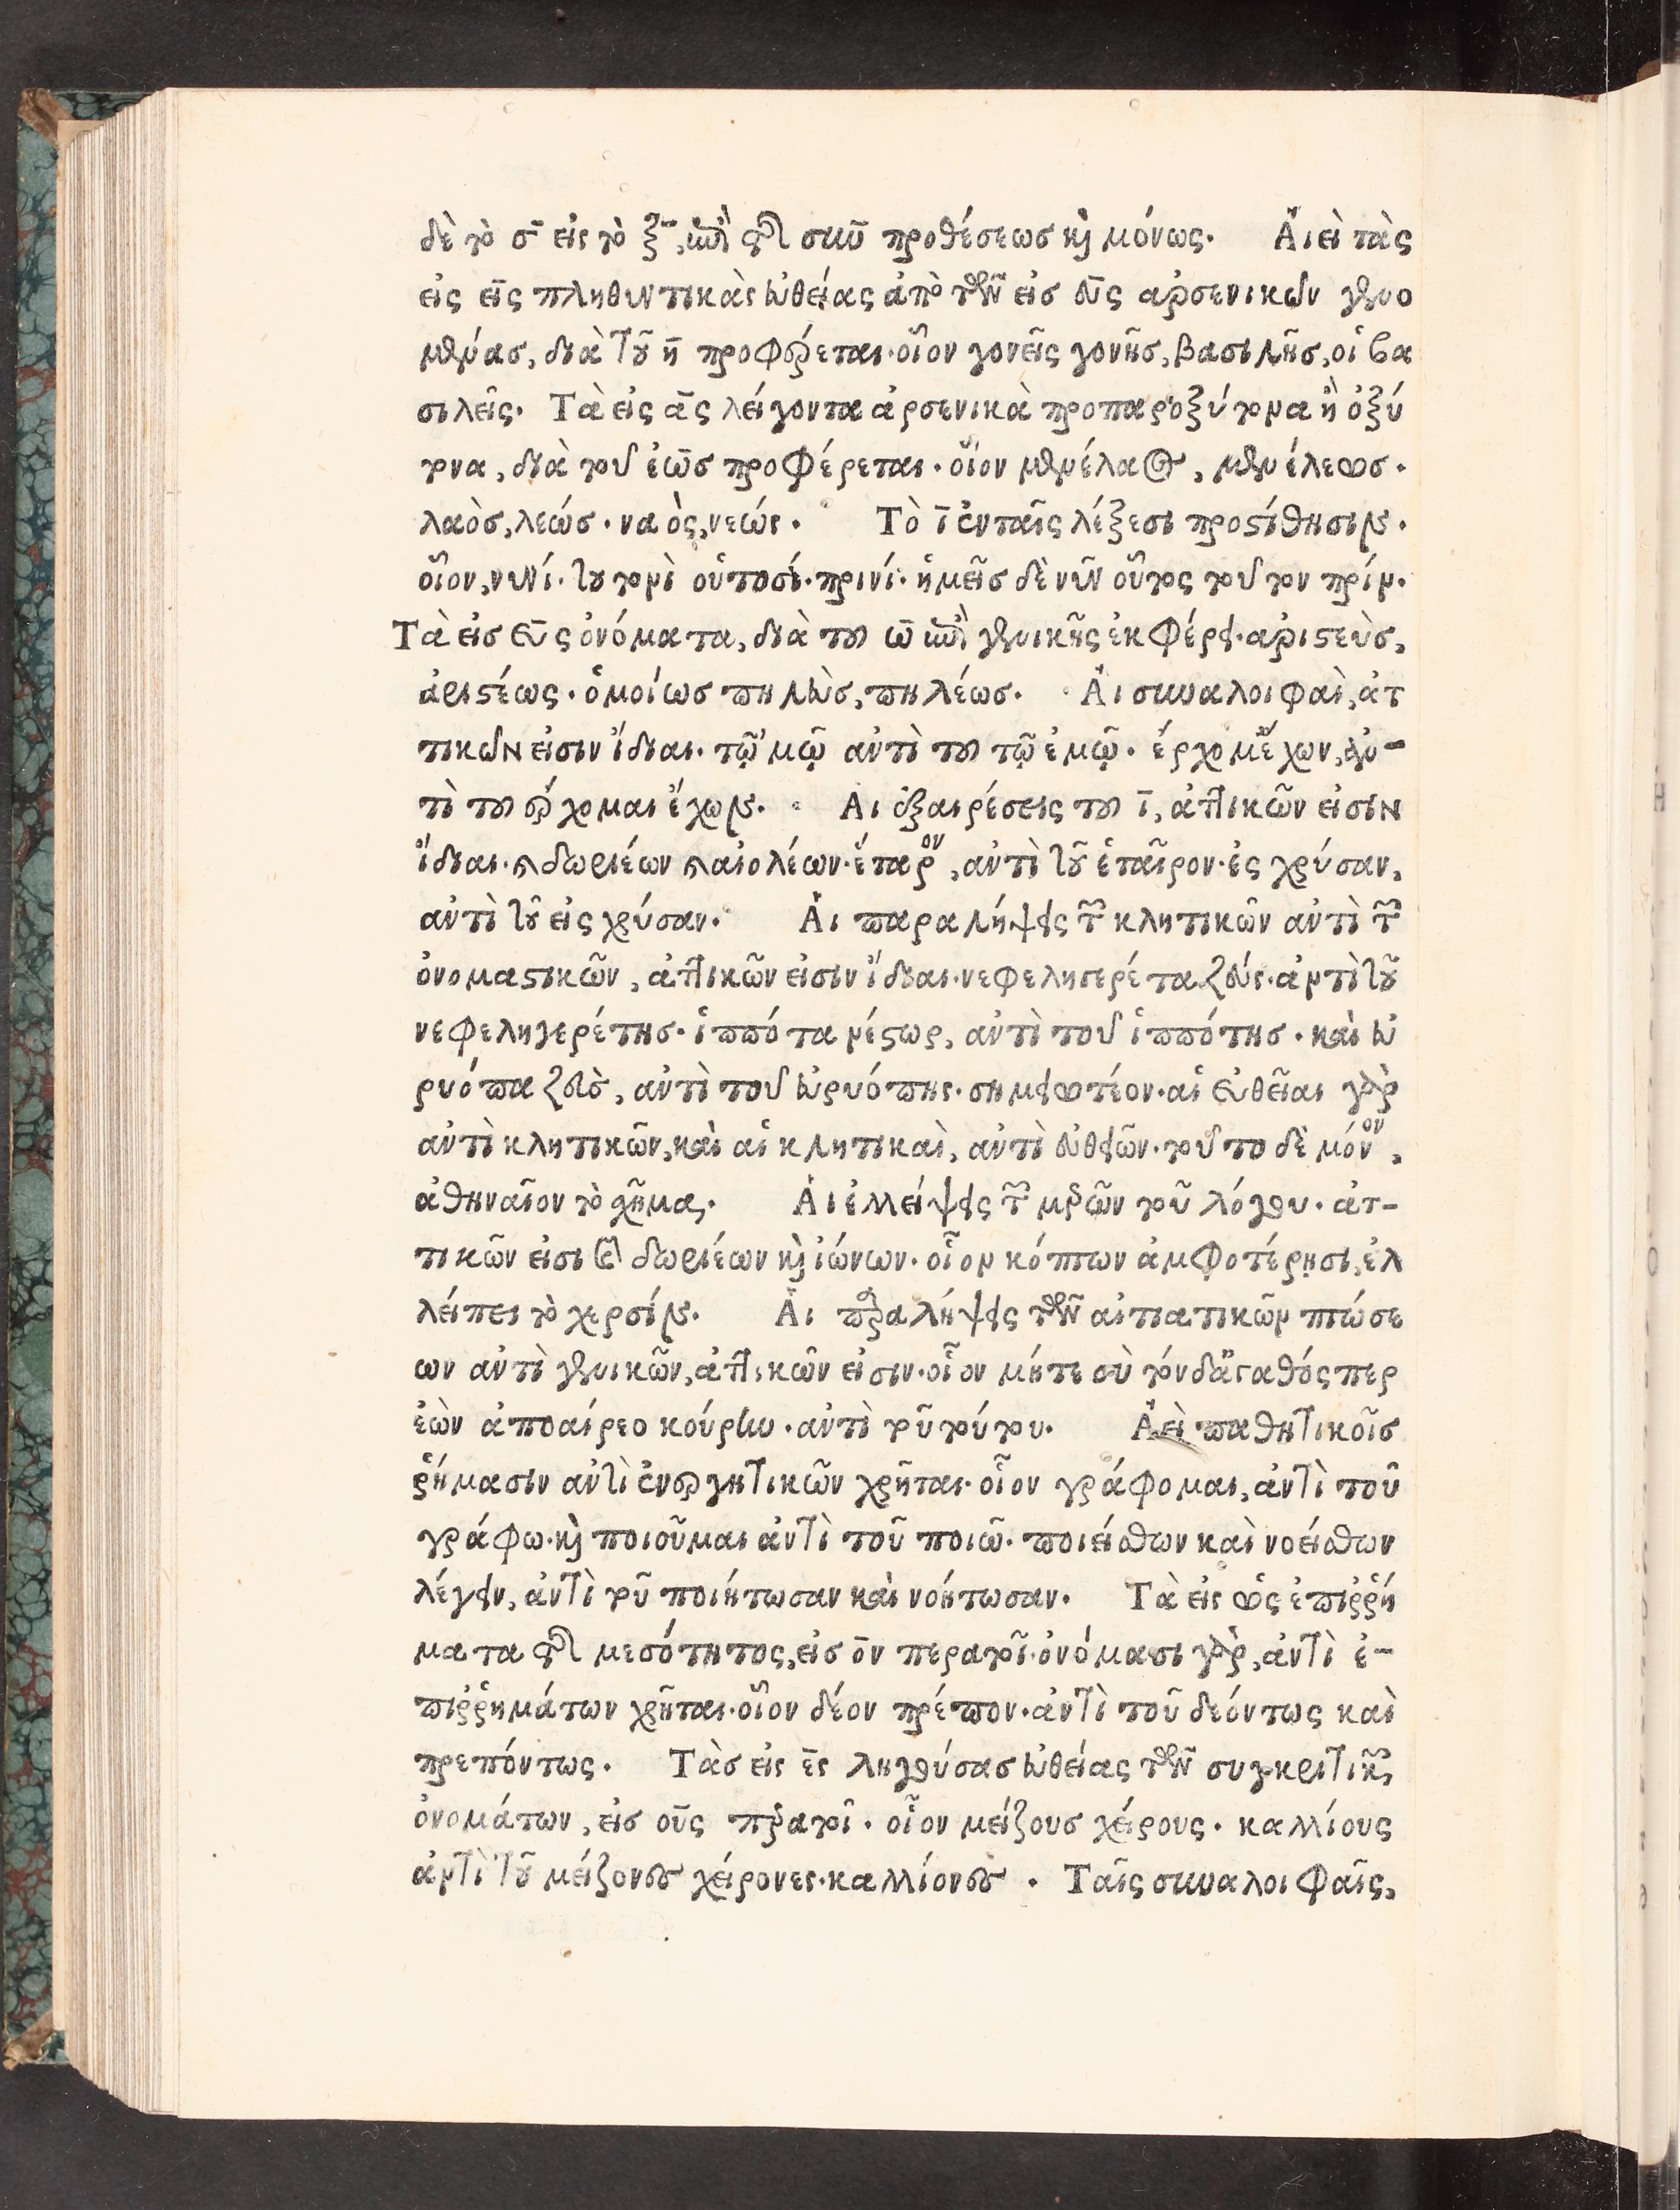 δὲ τὸ σ̄ εἰς τὸ ξ̄, ἐπὶ τῆς σὺν προθέσεως καὶ μόνως. Ἀιεὶ τὰς
εἰς εῑς πληθυντικὰς εὐθείας ἀπὸ τῶν εἰσ εῡς ἀρσενικῶν γενο
μένας, διὰ τοῦ η̄ προφέρεται. οἷον γονεῖς γονῆσ, βασιλῆσ, οἱ βα
σιλεῖς. Τὰ εἰς ᾱς λείγοντα ἀρσενικὰ προπαροξύτονα ἢ ὀξύ
τονα, διὰ τοῦ ἑω̄σ προφέρεται. οἷον μενέλαος, μενέλεωσ.
λαὸσ, λεώσ. ναὸς, νεώς. Τὸ ῑ ἐν ταῖς λέξεσι προστίθησιν.
οἷον, νυνί. τουτονὶ οὑτοσί. πρινί. ἡμεῖσ δὲ νῦν οὗτος τοῦτον πρίν.
Τὰ εἰσ εῡς ὀνόματα, διὰ τοῦ ω̄ ἐπὶ γενικῆς ἐκφέρει. ἀριστεὺσ,
ἀριστέως. ὁμοίωσ πηλεὺσ, πηλέωσ. Ἁι συναλοιφαὶ, ἀτ
τικῶν εἰσιν ἴδιαι. τῷ 'μῷ ἀντὶ τοῦ τῷ ἐμῷ. ἔρχομ' ἔχων, ἀν-
τὶ τοῦ ἔρχομαι ἔχων. Αἱ ἐξαιρέσεις τοῦ ῑ, ἀττικῶν εἰσιν
ἴδιαι. καὶ δωριέων καὶ αἰολέων. ἕταρον, ἀντὶ τοῦ ἑταῖρον. ἐς χρύσαν,
ἀντὶ τοῦ εἰς χρύσαν. Ἁι παραλήψεις τῶν κλητικῶν ἀντὶ τῶν
ὀνομαστικῶν, ἀττικῶν εἰσιν ἴδιαι. νεφεληγερέτα ζεύς. ἀντὶ τοῦ
νεφεληγερέτησ. ἱππότα νέστωρ, ἀντὶ τοῦ ἱππότησ. καὶ εὐ
ρυόπα ζεὺσ, ἀντὶ τοῦ εὐρυόπης. σημειωτέον. αἱ εὐθεῖαι γὰρ
ἀντὶ κλητικῶν, καὶ αἱ κλητικαὶ, ἀντὶ εὐθειῶν. τοῦτο δὲ μόνον,
ἀθηναῖον τὸ σχῆμα. Ἁι ἐλλείψεις τῶν μερῶν τοῦ λόγου. ἀτ-
τικῶν εἰσι καὶ δωριέων καὶ ἰώνων. οἷον κόπτων ἀμφοτέρῃσι, ἐλ
λείπει τὸ χερσίν. Ἁι παραλήψεις τῶν αἰτιατικῶν πτώσε
ων ἀντὶ γενικῶν, ἀττικῶν εἰσιν. οἷον μήτε σὺ τόνδ' ἀγαθός περ
ἐὼν ἀποαίρεο κούρην. ἀντὶ τοῦ τούτου. Ἀεὶ παθητικοῖσ
ῥήμασιν ἀντὶ ἐνεργητικῶν χρῆται. οἷον γράφομαι, ἀντὶ τοῦ
γράφω. καὶ ποιοῦμαι ἀντὶ τοῦ ποιῶ. ποιείσθων καὶ νοείσθων
λέγειν, ἀντὶ τοῦ ποιήτωσαν καὶ νοήτωσαν. Τὰ εἰς ως ἐπιῤῥή
ματα τῆς μεσότητος, εἰσ ο̄ν περατοῖ. ὀνόμασι γὰρ, ἀντὶ ἐ-
πιῤῥημάτων χρῆται. οἷον δέον πρέπον. ἀντὶ τοῦ δεόντως καὶ
πρεπόντως. Τὰσ εἰς ε̄ς ληγούσασ εὐθείας τῶν συγκριτικῶν
ὀνομάτων, εἰσ οῡς περατοῖ. οἷον μείζουσ χείρους. καλλίους
ἀντὶ τοῦ μείζονες χείρονες. καλλίονες. Ταῖς συναλοιφαῖς,